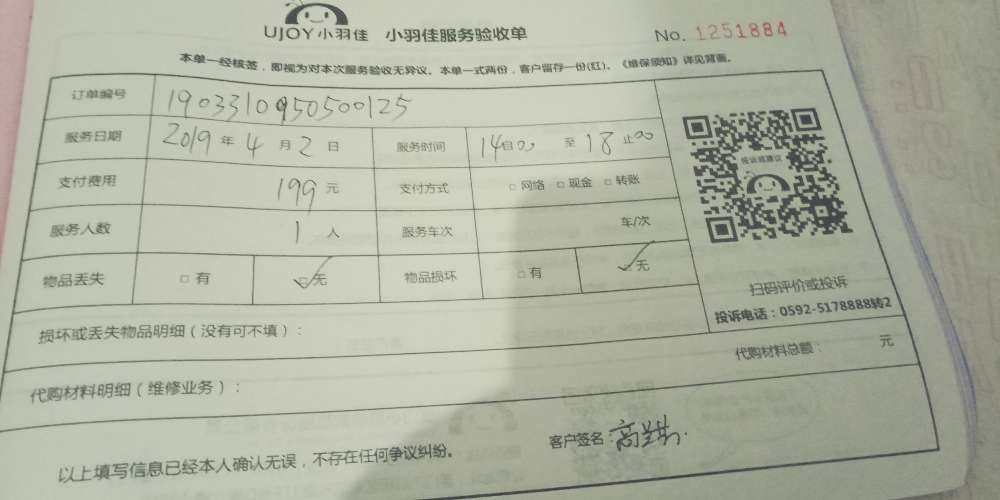 UJOY小羽佳 小羽佳服务验收单 No. 1251884
本单一经核签,即视为对本次服务验收无异议。本单一式两份,客户留存一份(红)。《维保须知》详见背面。
订单编号 1903310950500125
服务日期 2019年4月2日 服务时间 14时00 至 18止00
支付费用 199元 支付方式 □网络 □现金 □转账
服务人数 1人 服务车次 车/次
物品丢失 □有 ☑无 物品损坏 □有 ☑无
投诉或建议
扫码评价或投诉
投诉电话:0592-5178888转2
损坏或丢失物品明细(没有可不填):
代购材料明细(维修业务): 代购材料总额: 元
以上填写信息已经本人确认无误,不存在任何争议纠纷。 客户签名:高